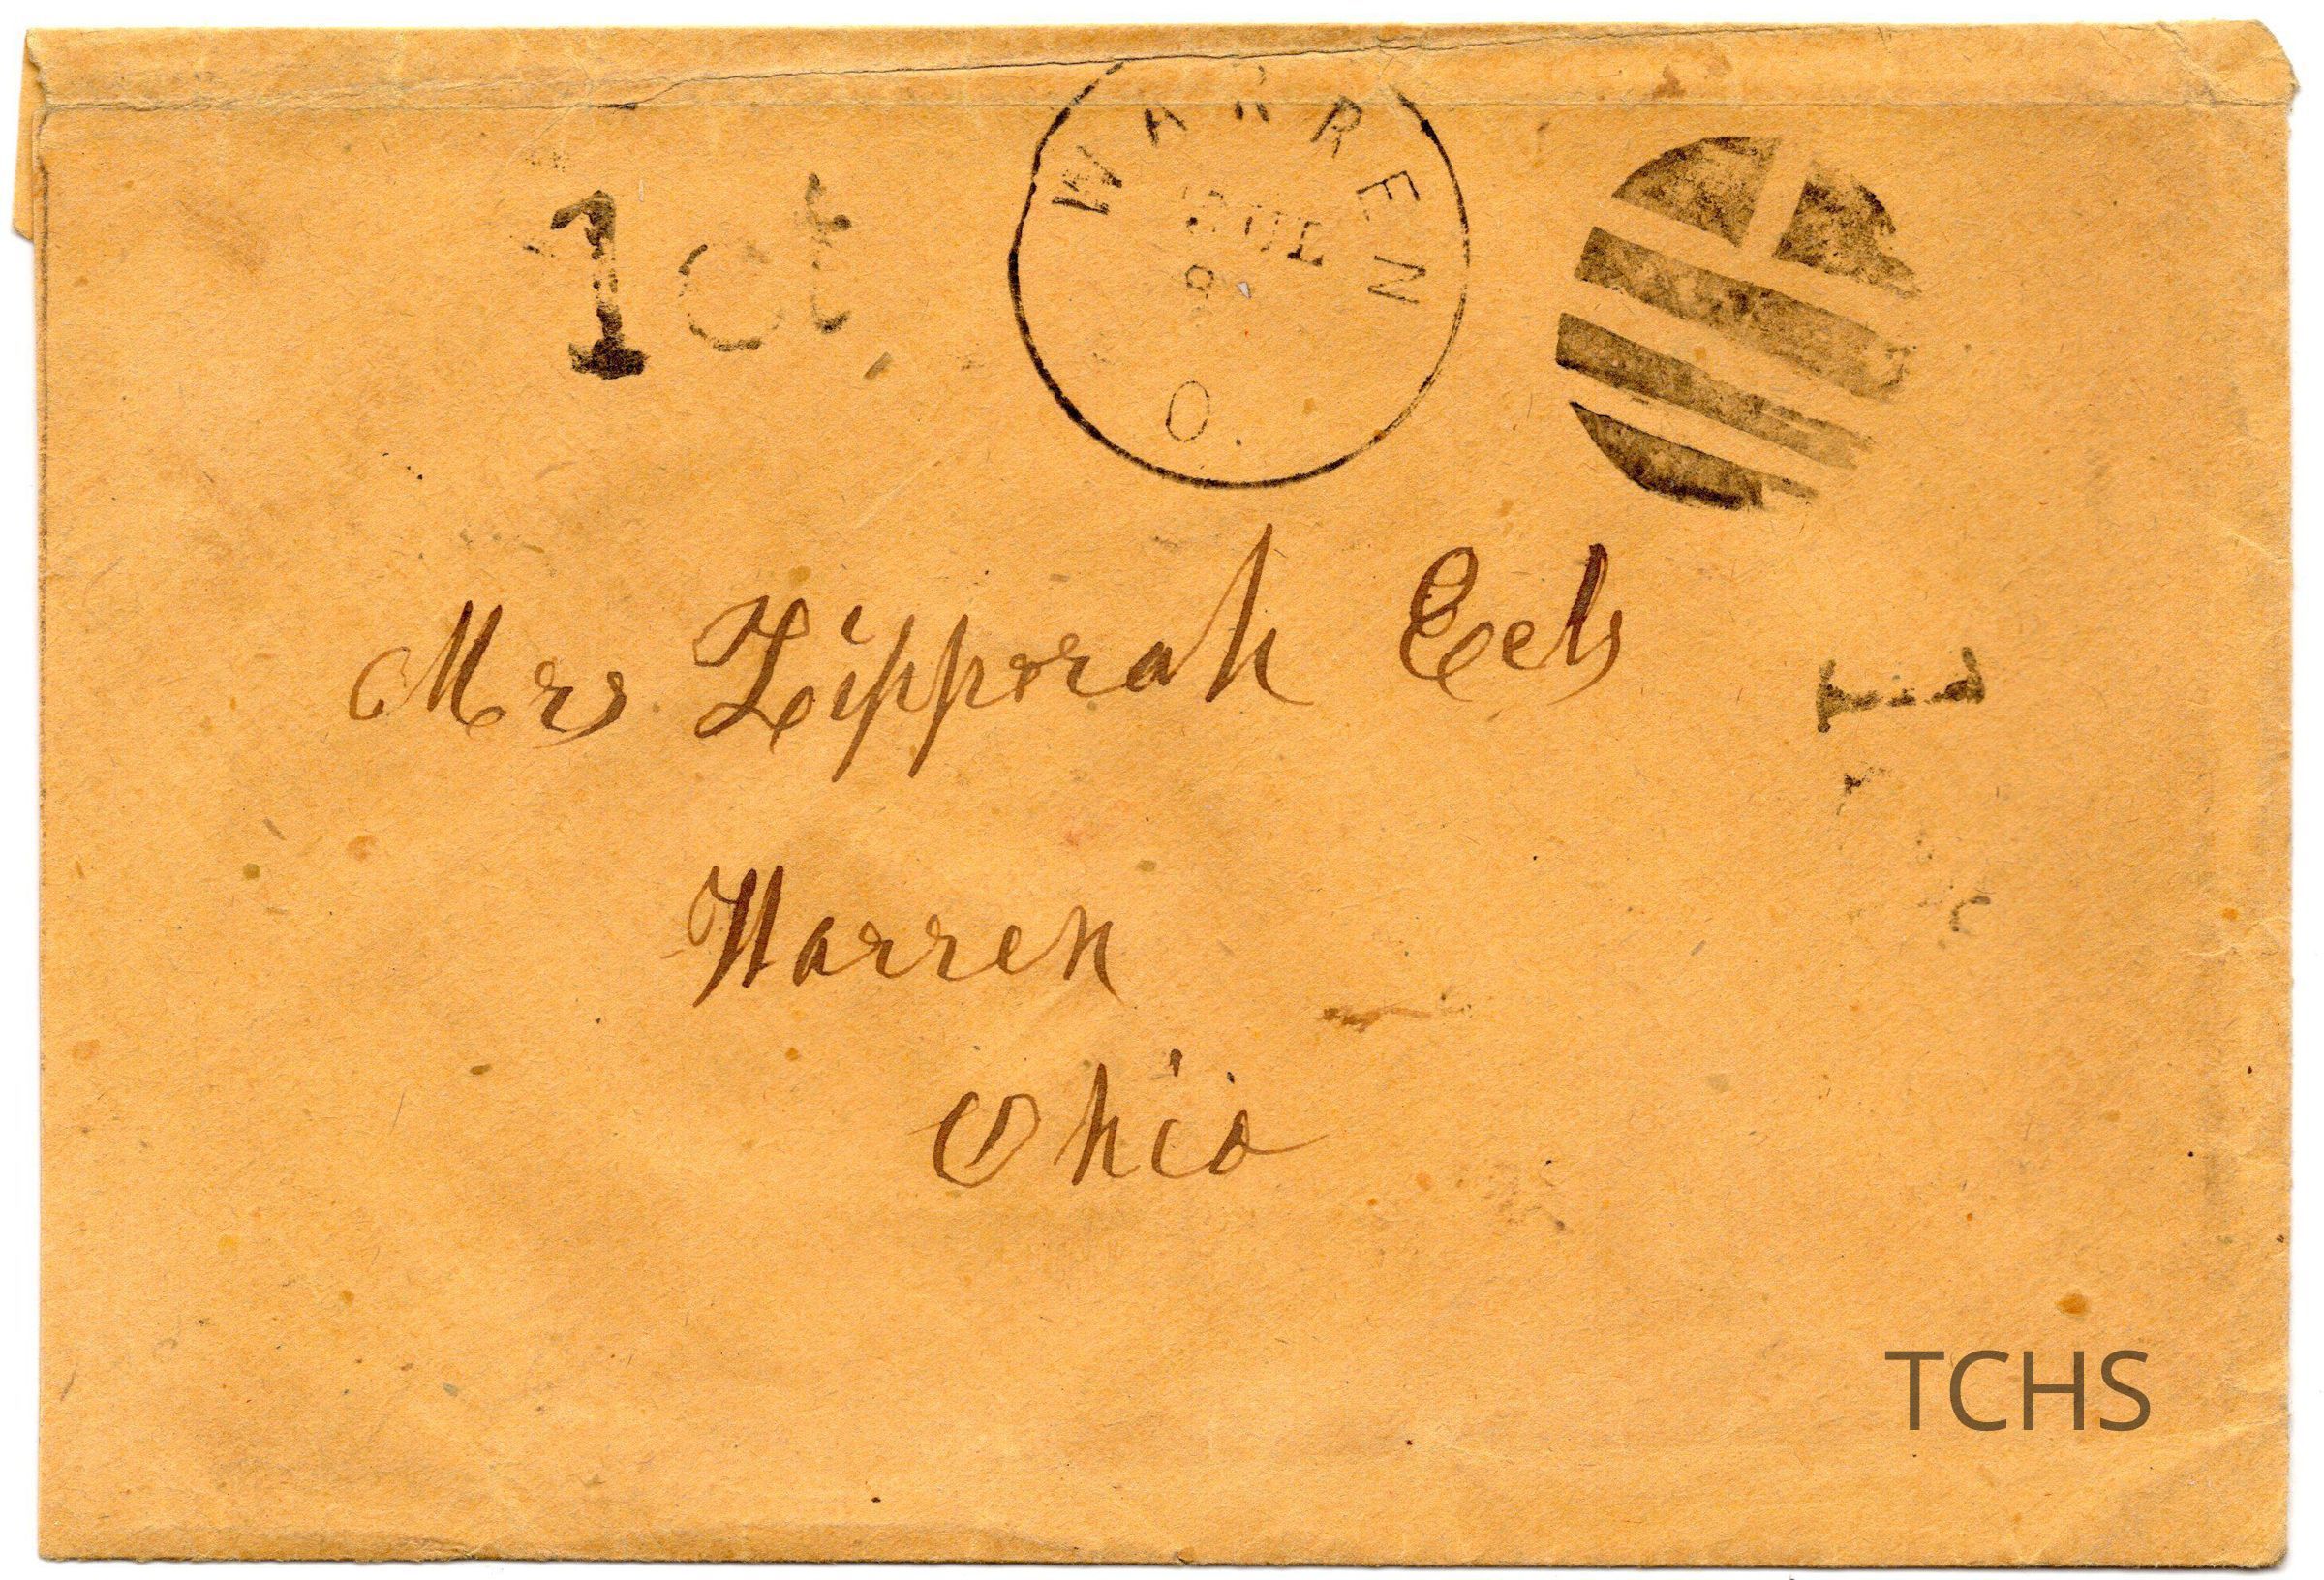 1ct
WARREN
JUL
O.
Mrs Zipporah Eels
Warren
Ohio
TCHS